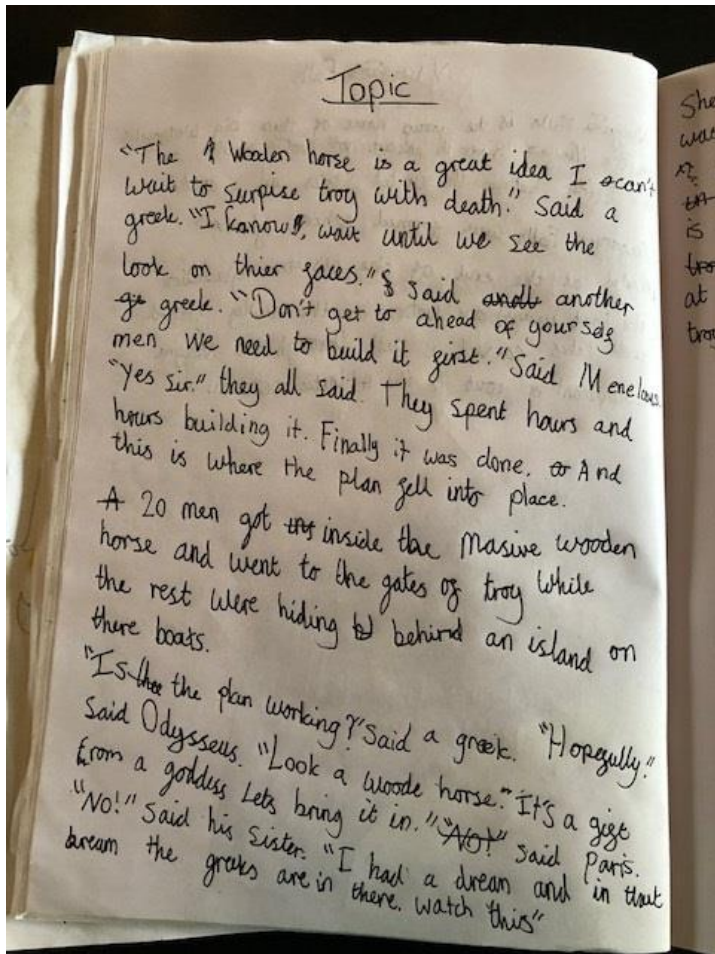 Topic
"The Wooden horse is a great idea I can't
wait to surpise troy with death." Said a
greek. "I kanow!, wait until we see the
look on thier faces." Said another
greek. "Don't get to ahead of yourself
men we need to build it first." Said Menelaus.
"Yes sir." they all said. They spent hours and
hours building it. Finally it was done. And
this is where the plan fell into place.
20 men got inside the masive wooden
horse and went to the gates of troy while
the rest were hiding behind an island on
there boats.
"Is the plan working?" Said a greek. "Hopefully."
Said Odysseus. "Look a woode horse." It's a gift
from a goddess Lets bring it in." "No!" Said Paris.
"No!" Said his sister. "I had a dream and in that
dream the greeks are in there. watch this"
She
was
is
at
troy